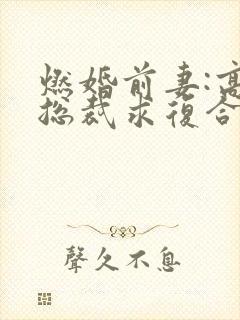 燃婚前妻:高
总裁求復合
聲久不息